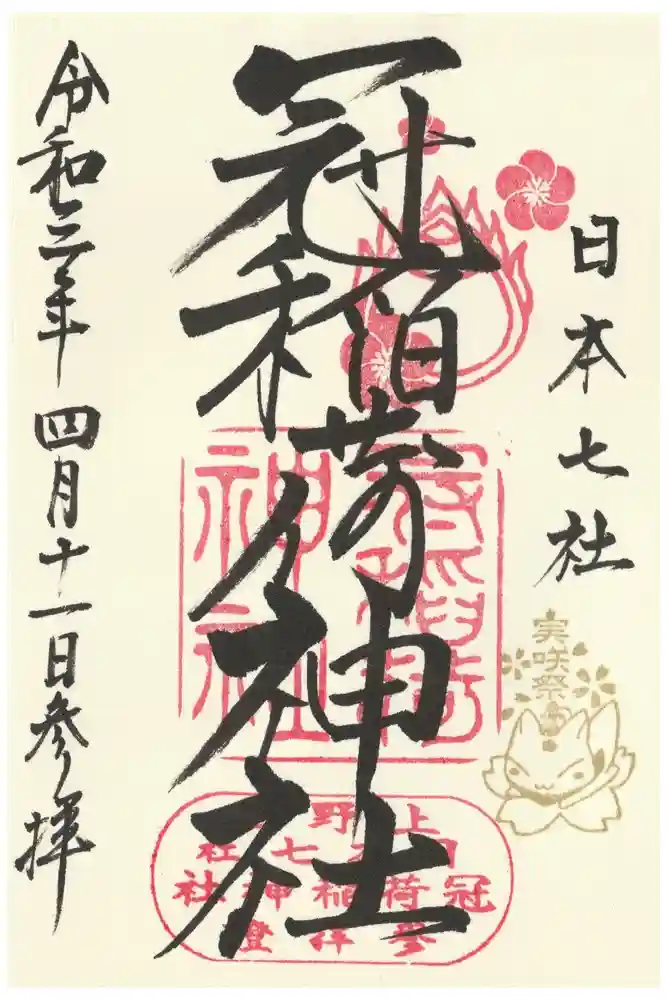 日本七社
冠稲荷神社
令和三年四月十一日参拝
実咲祭
冠稲荷
神社
上野
日本七社
冠稲荷神社
參拝證